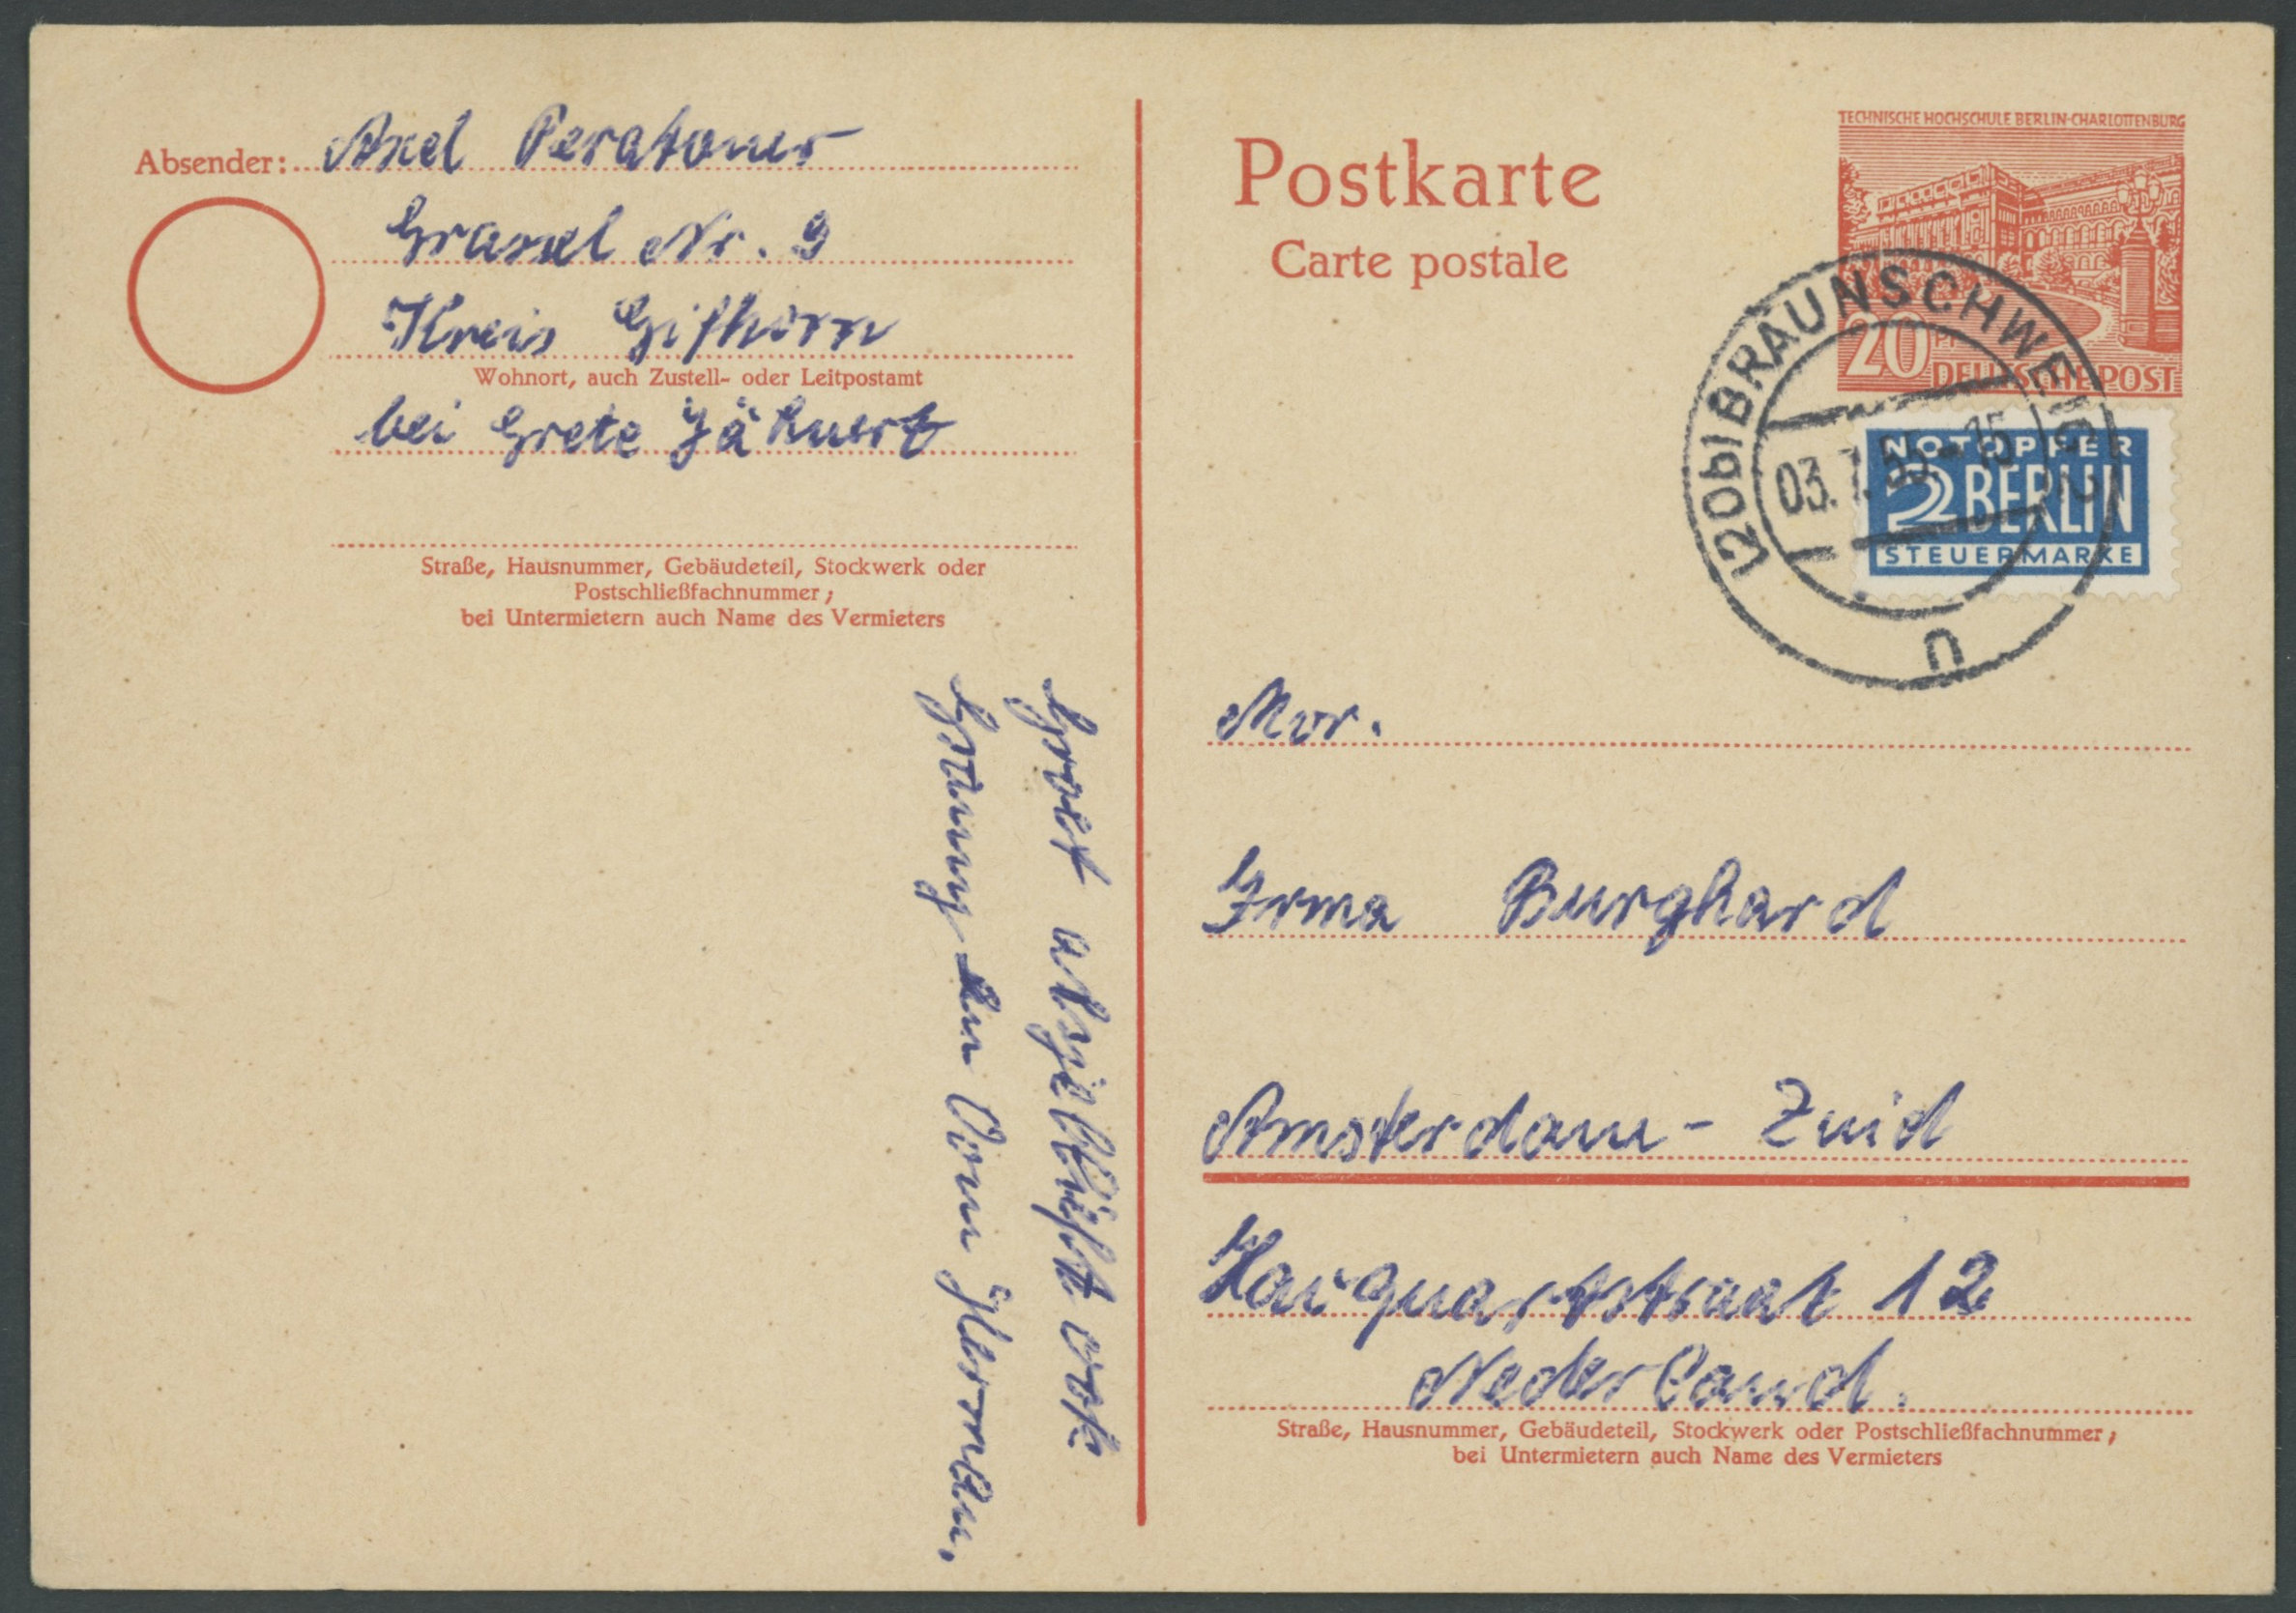 Absender: Axel Peratoner
Grassel Nr. 9
Kreis Gifhorn
Wohnort, auch Zustell- oder Leitpostamt
bei Grete Jähnert
Straße, Hausnummer, Gebäudeteil, Stockwerk oder
Postschließfachnummer;
bei Untermietern auch Name des Vermieters
Groet
Hermann.
Postkarte
Carte postale
TECHNISCHE HOCHSCHULE BERLIN-CHARLOTTENBURG
20 PF
DEUTSCHE POST
(20b) BRAUNSCHWEIG 2
03.7.55-15
u
NOTOPFER
2 BERLIN
STEUERMARKE
Mvr.
Irma Burghard
Amsterdam-Zuid
straat 12
Nederland.
Straße, Hausnummer, Gebäudeteil, Stockwerk oder Postschließfachnummer;
bei Untermietern auch Name des Vermieters